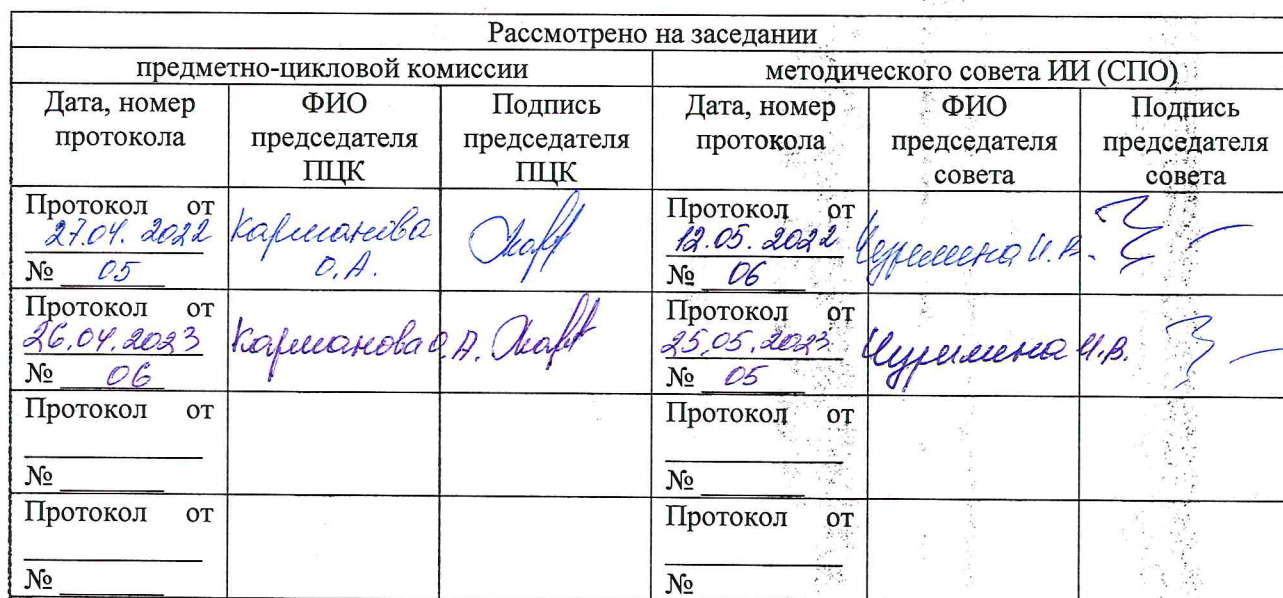 Рассмотрено на заседании
предметно-цикловой комиссии методического совета ИИ (СПО)
Дата, номер протокола ФИО председателя ПЦК Подпись председателя ПЦК Дата, номер протокола ФИО председателя совета Подпись председателя совета
Протокол от
27.04.2022
№ 05
Карманова
О.А.
Протокол от
12.05.2022
№ 06
И.В.
Протокол от
26.04.2023
№ 06
Карманова О.А.
Протокол от
25.05.2023
№ 05
И.В.
Протокол от
№
Протокол от
№
Протокол от
№
Протокол от
№